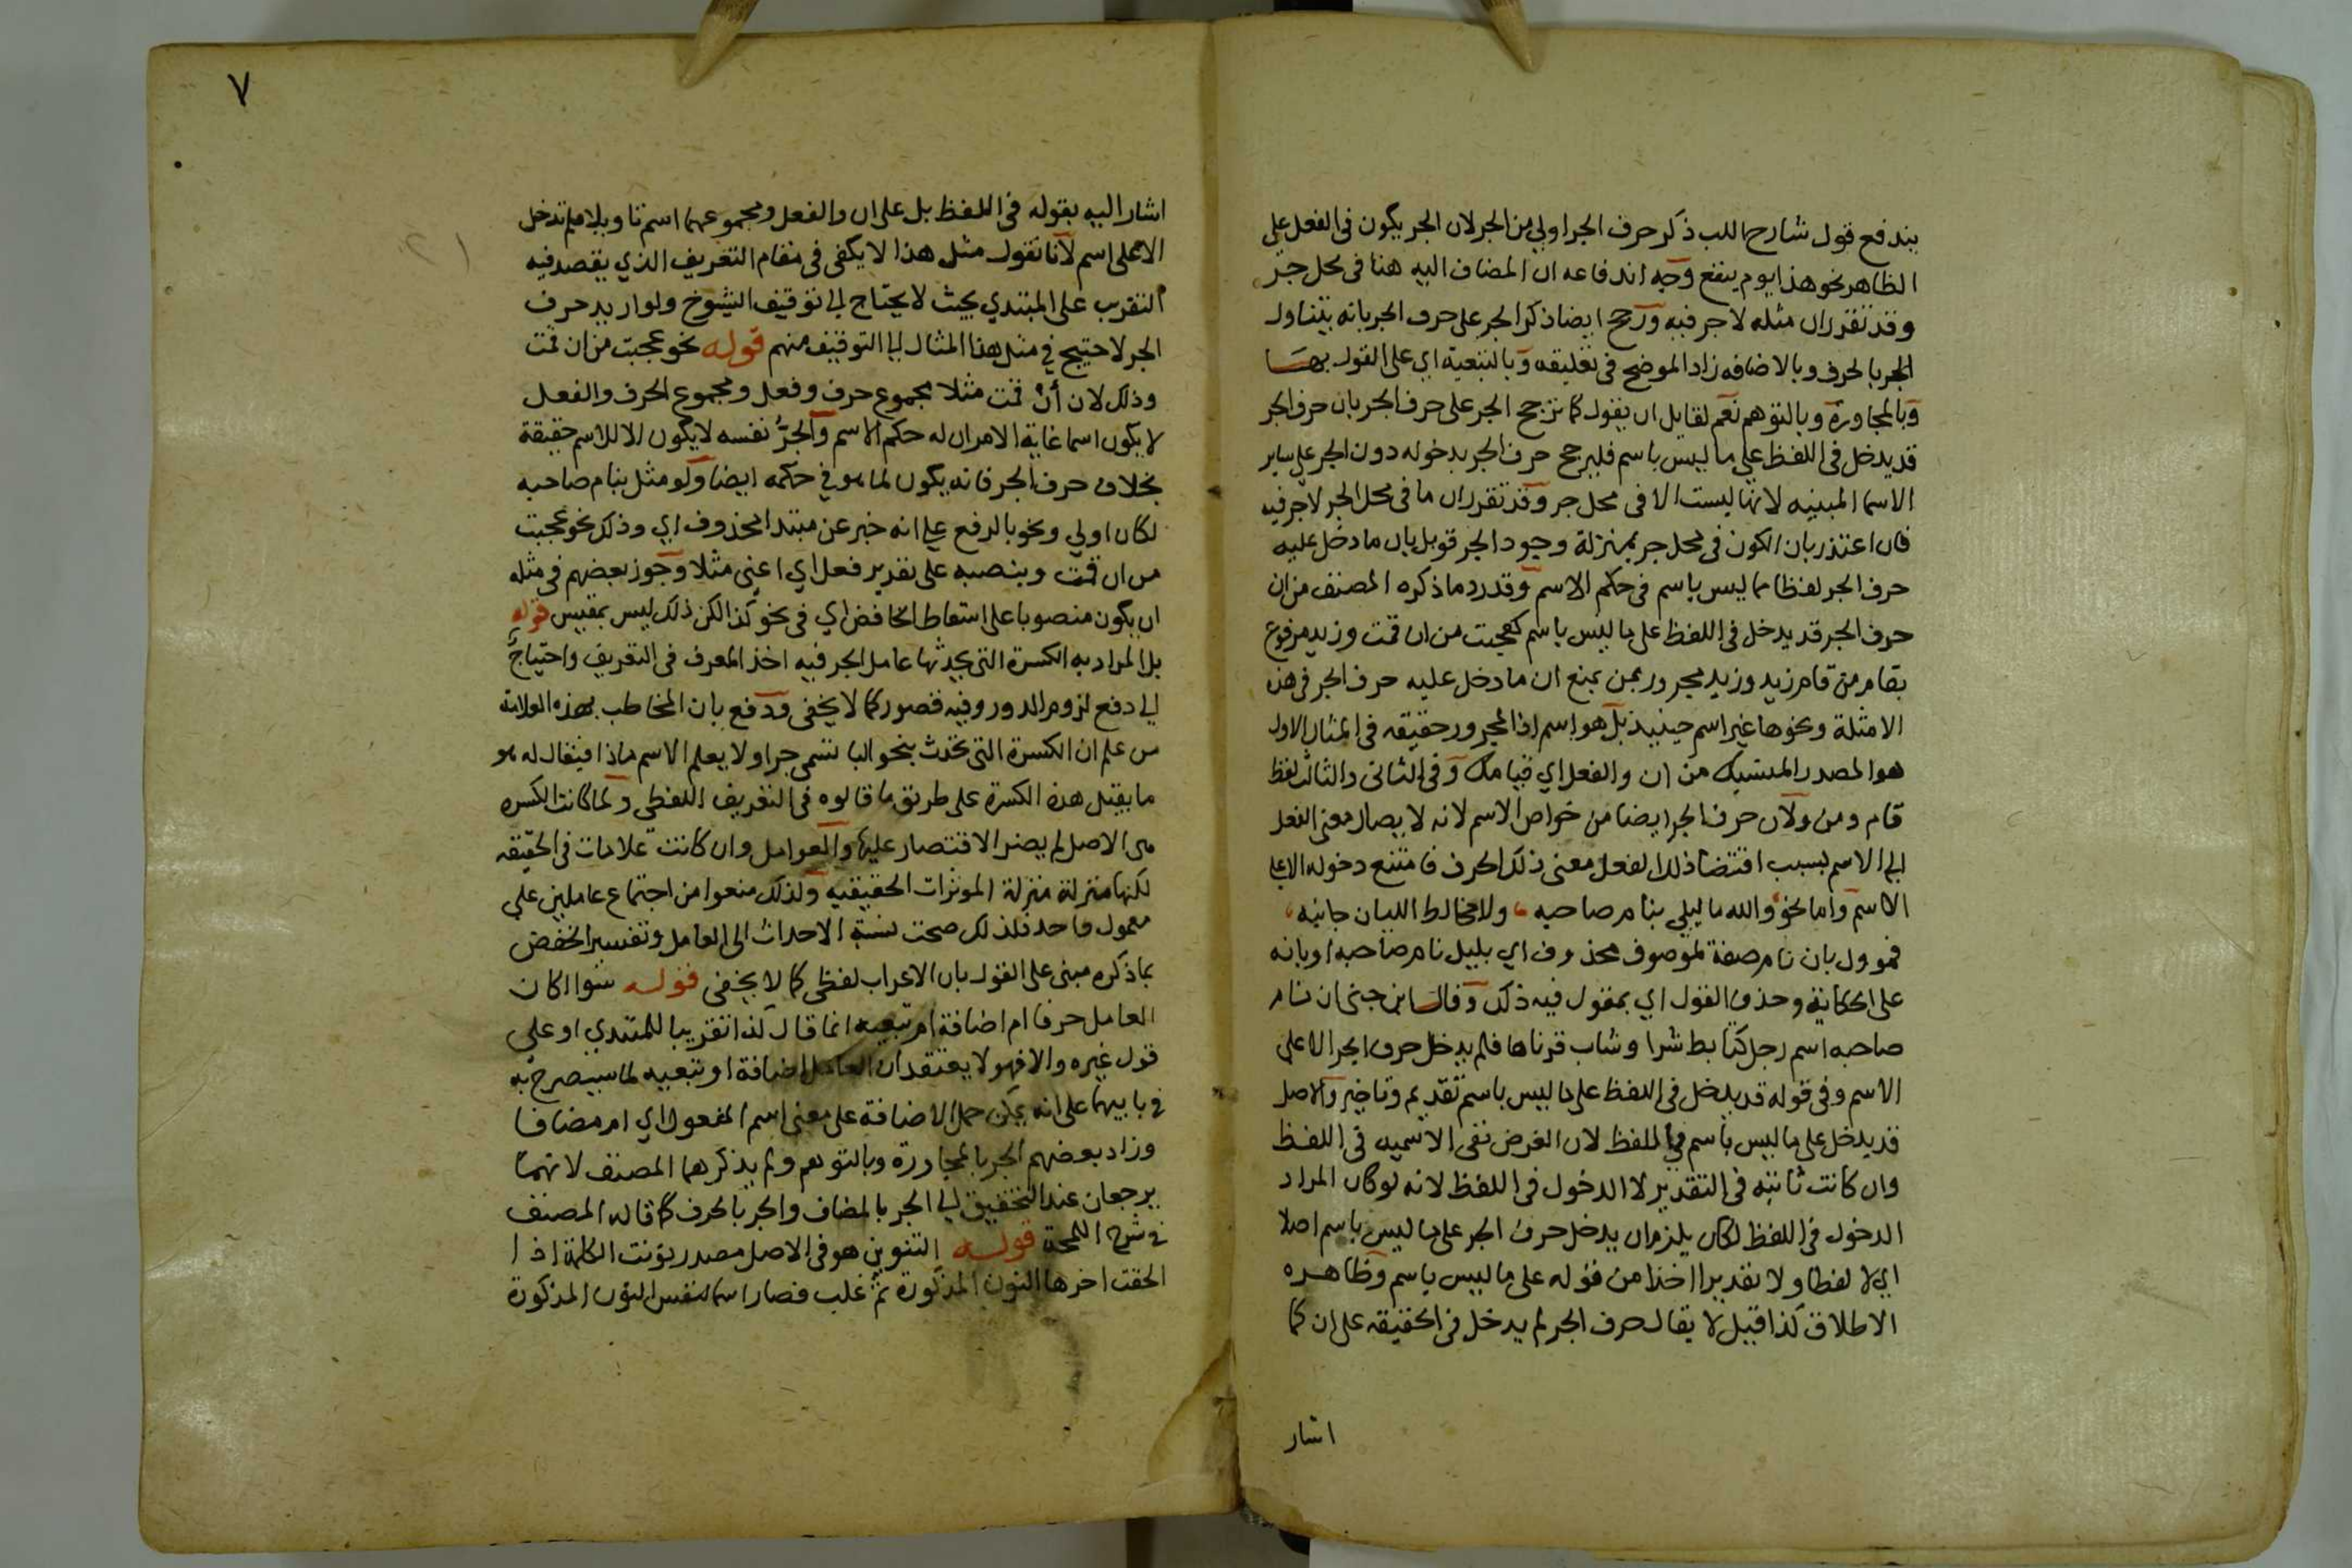 يندفع قول شارح اللب ذكر حرف الجر اولي من الجر لان الجر يكون في الفعل علي
الظاهر نحو هذا يوم ينفع وجه اندفاعه ان المضاف اليه هنا في محل جر
وقد تقرر ان مثله لا جر فيه ورجح ايضا ذكر الجر على حرف الجر بانه يتناول
الجر بالحرف وبالاضافه زاد الموضح في تعليقه وبالتبعية اي على القول بها
وبالمجاورة وبالتوهم نعم لقايل ان يقول كما ترجح الجر على حرف الجر بان حرف الجر
قد يدخل في اللفظ علي ما ليس باسم فليرجح حرف الجر بدخوله دون الجر علي ساير
الاسما المبنيه لانها ليست الا في محل جر وقد تقرر ان ما في محل الجر لا جر فيه
فان اعتذر بان الكون في محل جر بمنزلة وجود الجر قوبل بان ما دخل عليه
حرف الجر لفظا مما ليس باسم في حكم الاسم وقد رد ما ذكره المصنف من ان
حرف الجر قد يدخل في اللفظ على ما ليس باسم كعجبت من ان قمت وزيد مرفوع
بقام من قام زيد وزيد مجرور بمن بمنع ان ما دخل عليه حرف الجر في هذه
الامثلة ونحوها غير اسم حينيذ بل هو اسم اذ المجرور حقيقه في المثال الاول
هو المصدر المنسبك من ان والفعل اي قيامك وفي الثاني والثالث لفظ
قام ومن ولان حرف الجر ايضا من خواص الاسم لانه لايصال معنى الفعل
الي الاسم بسبب اقتضا ذلك الفعل معنى ذلك الحرف فامتنع دخوله الا علي
الاسم واما نحو والله ما ليلي بنام صاحبه ولا مخالط الليان جانبه
فموول بان نام صفة لموصوف محذوف اي بليل نام صاحبه او بانه
على الحكاية وحذف القول اي بمقول فيه ذلك وقال ابن جني ان نام
صاحبه اسم رجل كتابط شرا وشاب قرناها فلم يدخل حرف الجر الا على
الاسم وفي قوله قد يدخل في اللفظ على ما ليس باسم تقديم وتاخير والاصل
قد يدخل على ما ليس باسم في اللفظ لان الغرض نفي الاسميه في اللفظ
وان كانت ثابته في التقدير لا الدخول في اللفظ لانه لو كان المراد
الدخول في اللفظ لكان يلزم ان يدخل حرف الجر على ما ليس باسم اصلا
اي لا لفظا ولا تقديرا اخذا من قوله على ما ليس باسم وظاهره
الاطلاق كذا قيل لا يقال حرف الجر لم يدخل في الحقيقه على ان كما
اشار
٧
اشار اليه بقوله في اللفظ بل على ان والفعل ومجموعهما اسم تاويلا فلم تدخل
الا على اسم لانا نقول مثل هذا لا يكفي في مقام التعريف الذي يقصد فيه
التقرب على المبتدي بحيث لا يحتاج الي توقيف الشيوخ ولو اريد حرف
الجر لاحتيج في مثل هذا المثال الي التوقيف منهم قوله نحو عجبت من ان قمت
وذلك لان أنْ قمت مثلا مجموع حرف وفعل ومجموع الحرف والفعل
لا يكون اسما غاية الامر ان له حكم الاسم والجرُّ نفسه لا يكون الا للاسم حقيقة
بخلاف حرف الجر فانه يكون لما هو في حكمه ايضا ولو مثل بنام صاحبه
لكان اولي ونحو بالرفع علي انه خبر عن مبتدا محذوف اي وذلك نحو عجبت
من ان قمت وبنصبه على تقدير فعل اي اعني مثلا وجوز بعضهم في مثله
ان يكون منصوبا على اسقاط الخافض اي في نحو كذا لكن ذلك ليس بمقيس قوله
بل المراد به الكسرة التي يحدثها عامل الجر فيه اخذ المعرف في التعريف واحتياج
الي دفع لزوم الدور وفيه قصور كما لا يخفى ودفع بان المخاطب بهذه العلامة
من علم ان الكسرة التي تحدث بنحو البا تسمى جرا ولا يعلم الاسم ماذا فيقال له هو
ما يقبل هذه الكسرة على طريق ما قالوه في التعريف اللفظي ولما كانت الكسره
هى الاصل لم يضر الاقتصار عليها والعوامل وان كانت علامات في الحقيقه
لكنها منزلة منزلة الموثرات الحقيقيه ولذلك منعوا من اجتماع عاملين علي
معمول واحد فلذلك صحت نسبة الاحداث الى العامل وتفسير الخفض
بما ذكره مبنى على القول بان الاعراب لفظي كما لا يخفى قوله سوا كان
العامل حرفا ام اضافة ام تبعيه انما قال كذا تقريبا للمبتدي او على
قول غيره والا فهو لا يعتقد ان العامل اضافة او تبعيه لما سيصرح به
في بابيهما على انه يمكن حمل الاضافة على معنى اسم المفعول اي ام مضافا
وزاد بعضهم الجر بالمجاورة وبالتوهم ولم يذكرهما المصنف لانهما
يرجعان عند التحقيق الي الجر بالمضاف والجر بالحرف كما قاله المصنف
في شرح اللمحة قوله التنوين هو في الاصل مصدر نونت الكلمة اذا
الحقت اخرها النون المذكورة ثم غلب فصار اسما لنفس النون المذكورة